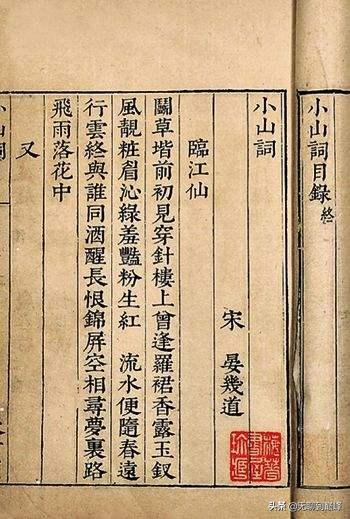 小山詞目錄 終
小山詞
宋 晏幾道
臨江仙
鬭草堦前初見穿針樓上曾逢羅裙香露玉釵
風靚粧眉沁綠羞豔粉生紅 流水便隨春遠
行雲終與誰同酒醒長恨錦屏空相尋夢裏路
飛雨落花中
又
小山詞
头条 @无聊到巅峰